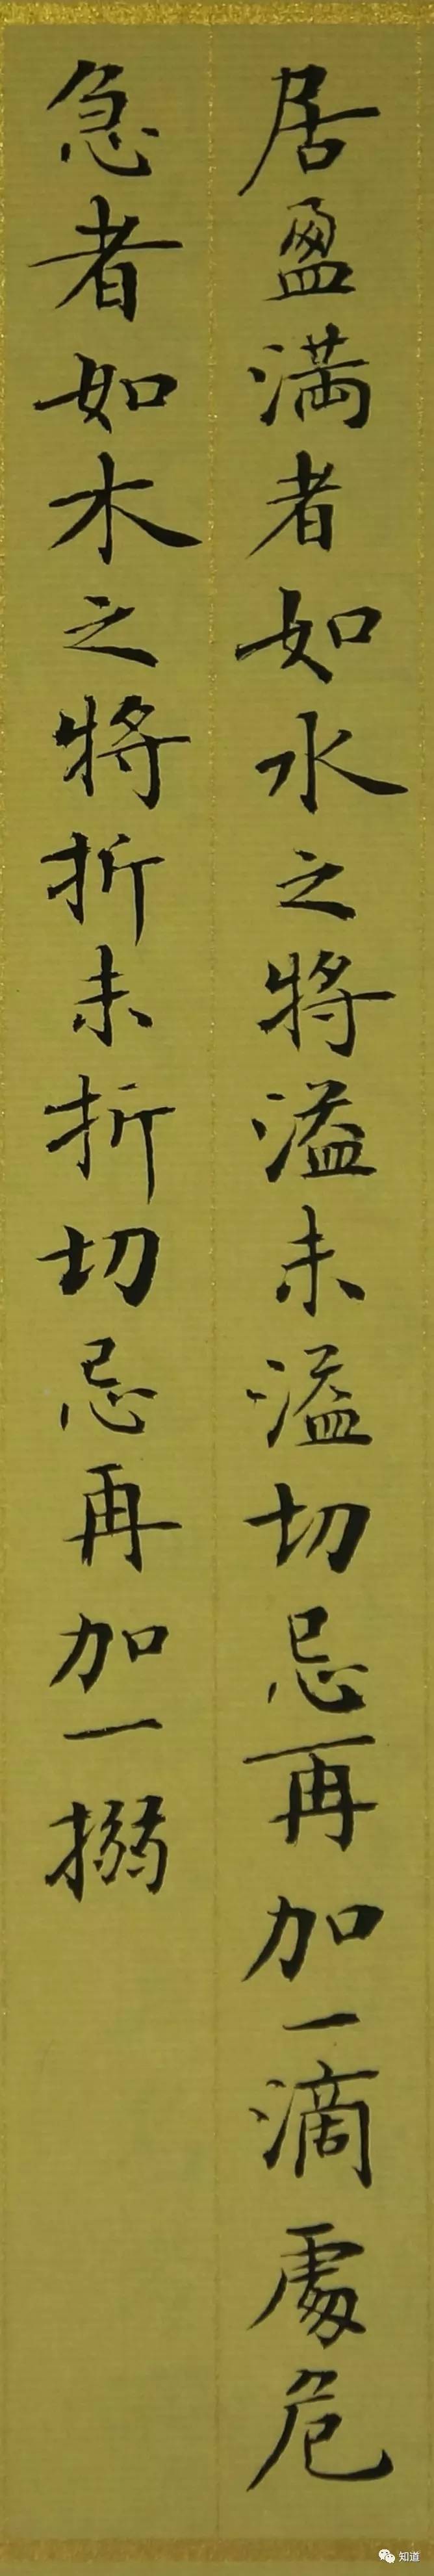 居盈满者如水之將溢未溢切忌再加一滴處危
急者如木之將折未折切忌再加一搦
知道